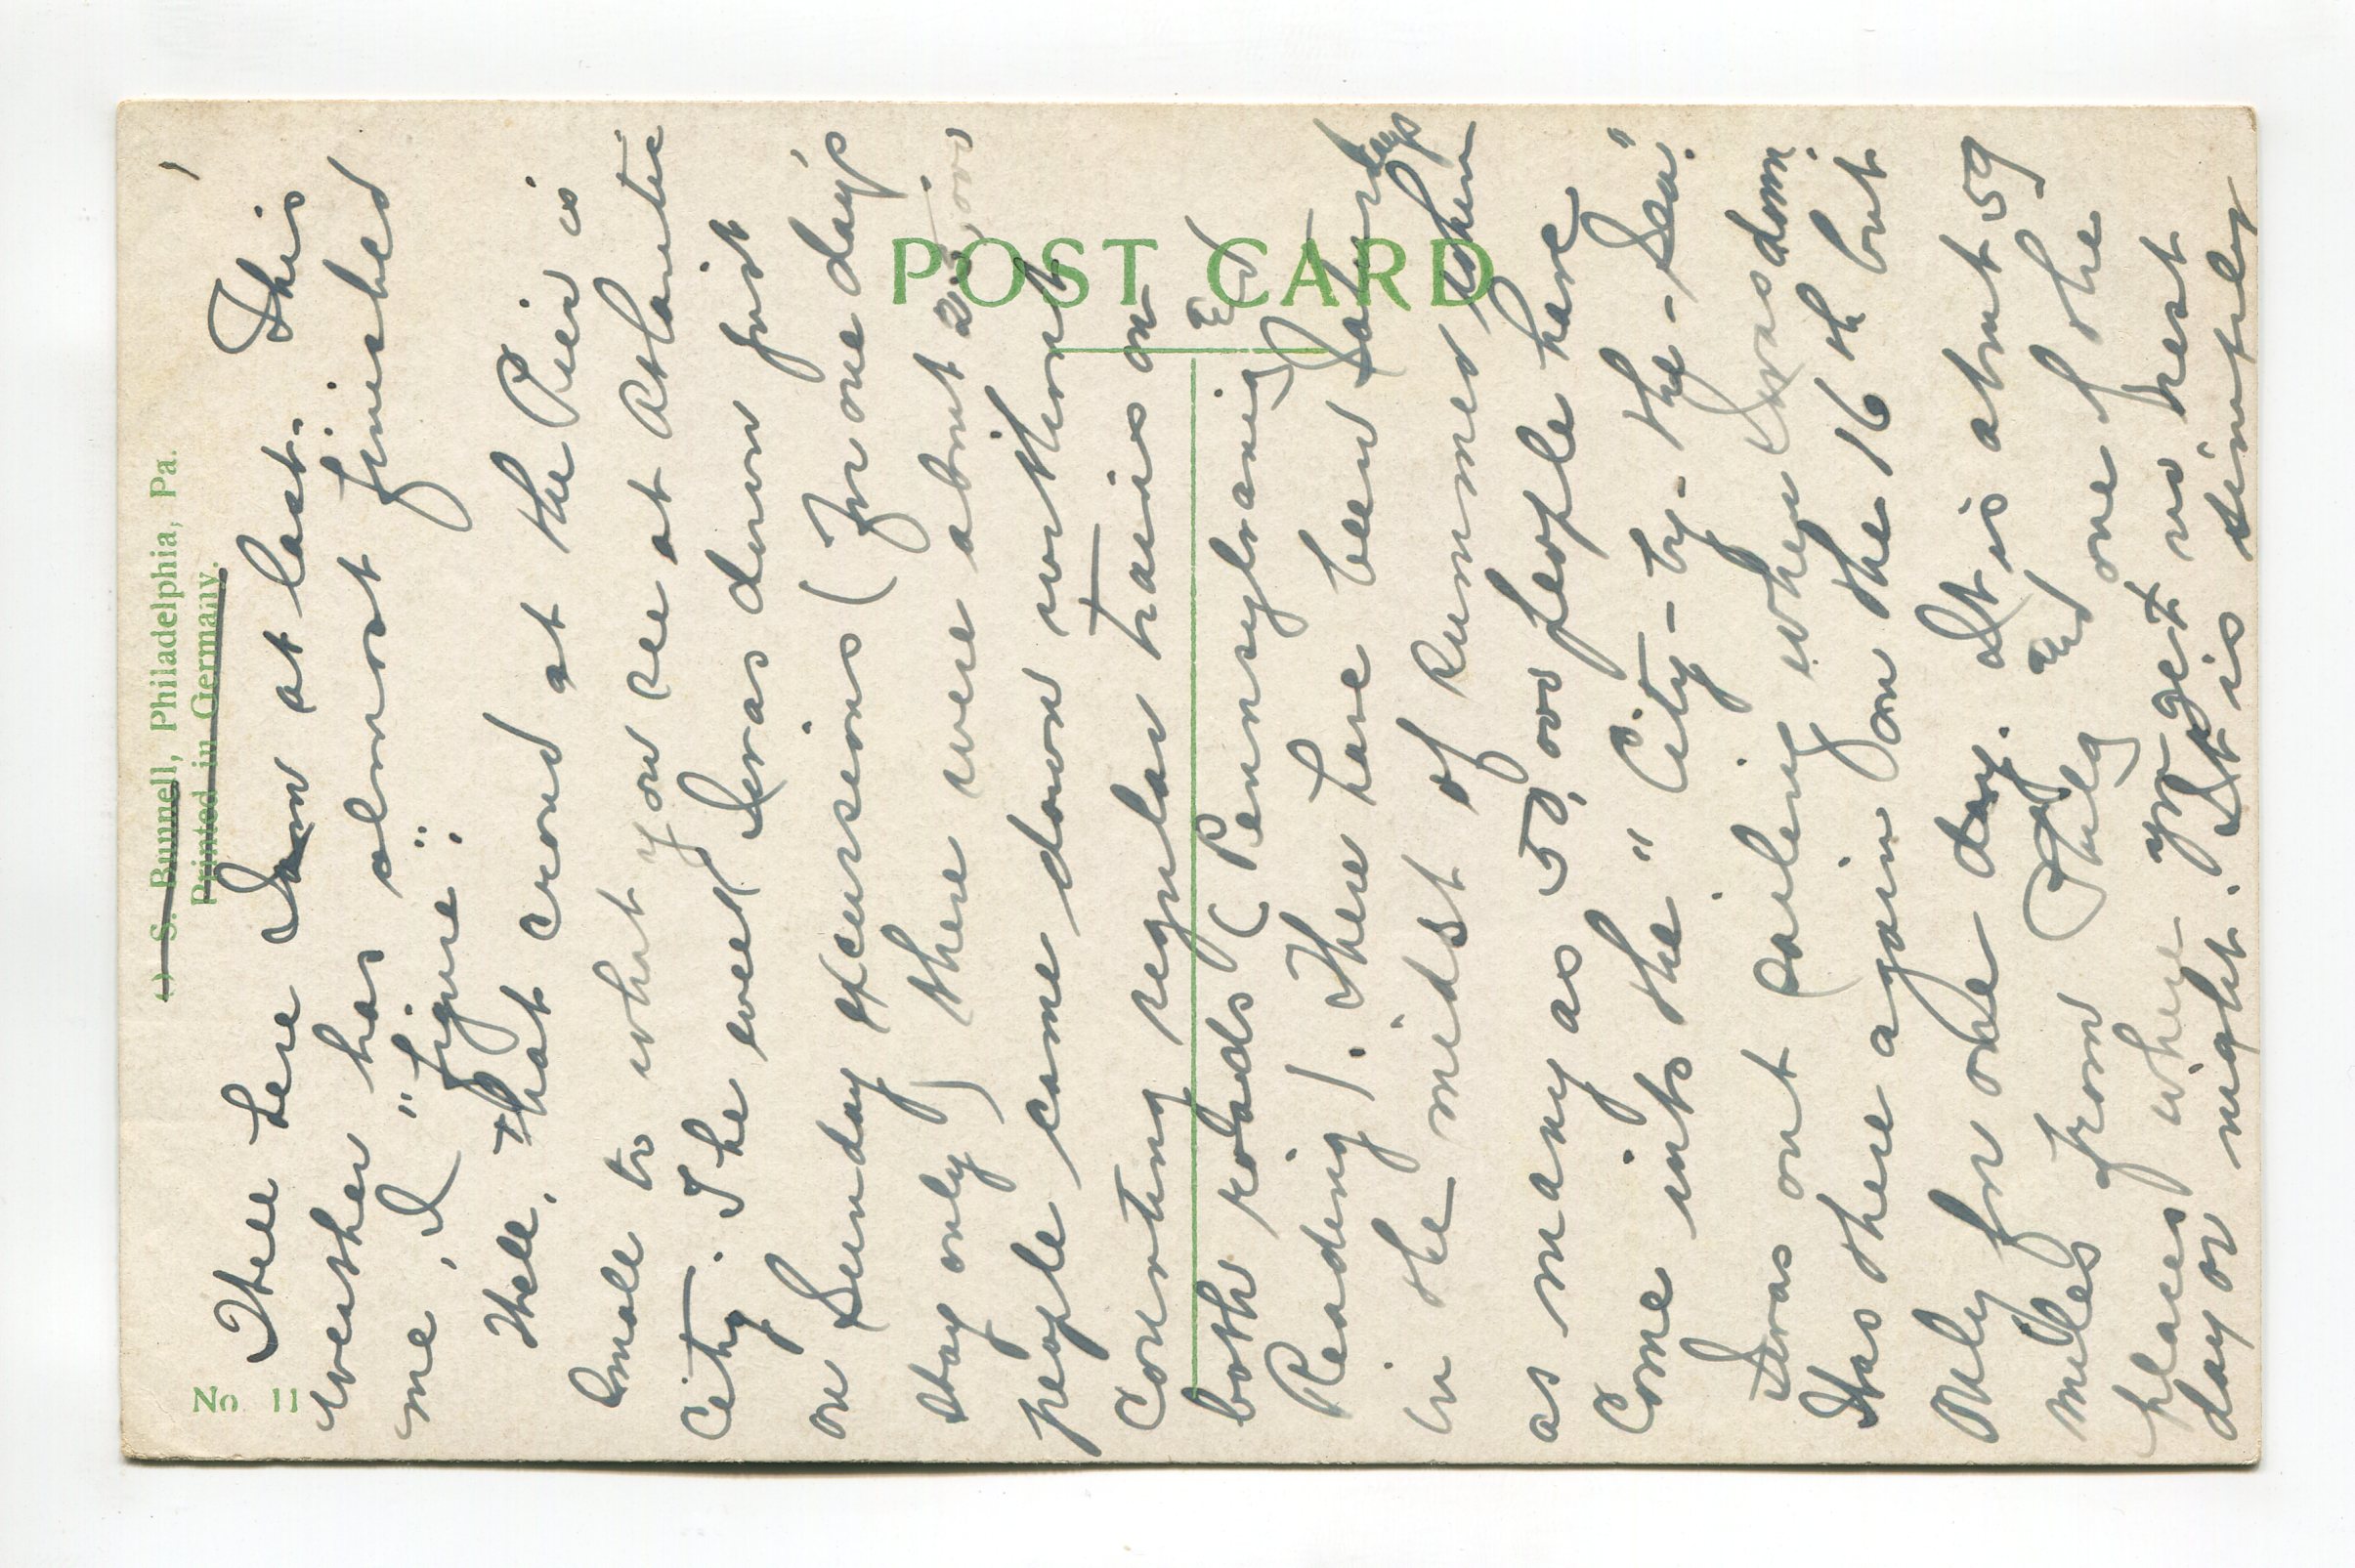 POST CARD
S. Bunnell, Philadelphia, Pa.
Printed in Germany.
No
11
Well here I am at last. This
weather has almost finished
me, I "figure".
Well, that crowd at the Pier is
small to what you see at Atlantic
City. The week I was down just
on Sunday excursions (for one day's
stay only) there were about 20,000
people came down without
counting regular trains on
both roads (Pennsylvania &
Reading). There have been Saturdays
in the midst of summer when
as many as 50,000 people have
come into the "City-by-the-Sea".
I was out sailing when I was down.
Was there again on the 16th but
only for one day. It is about 59
miles from Phila and one of the
places where you get no rest
day or night. It is simply